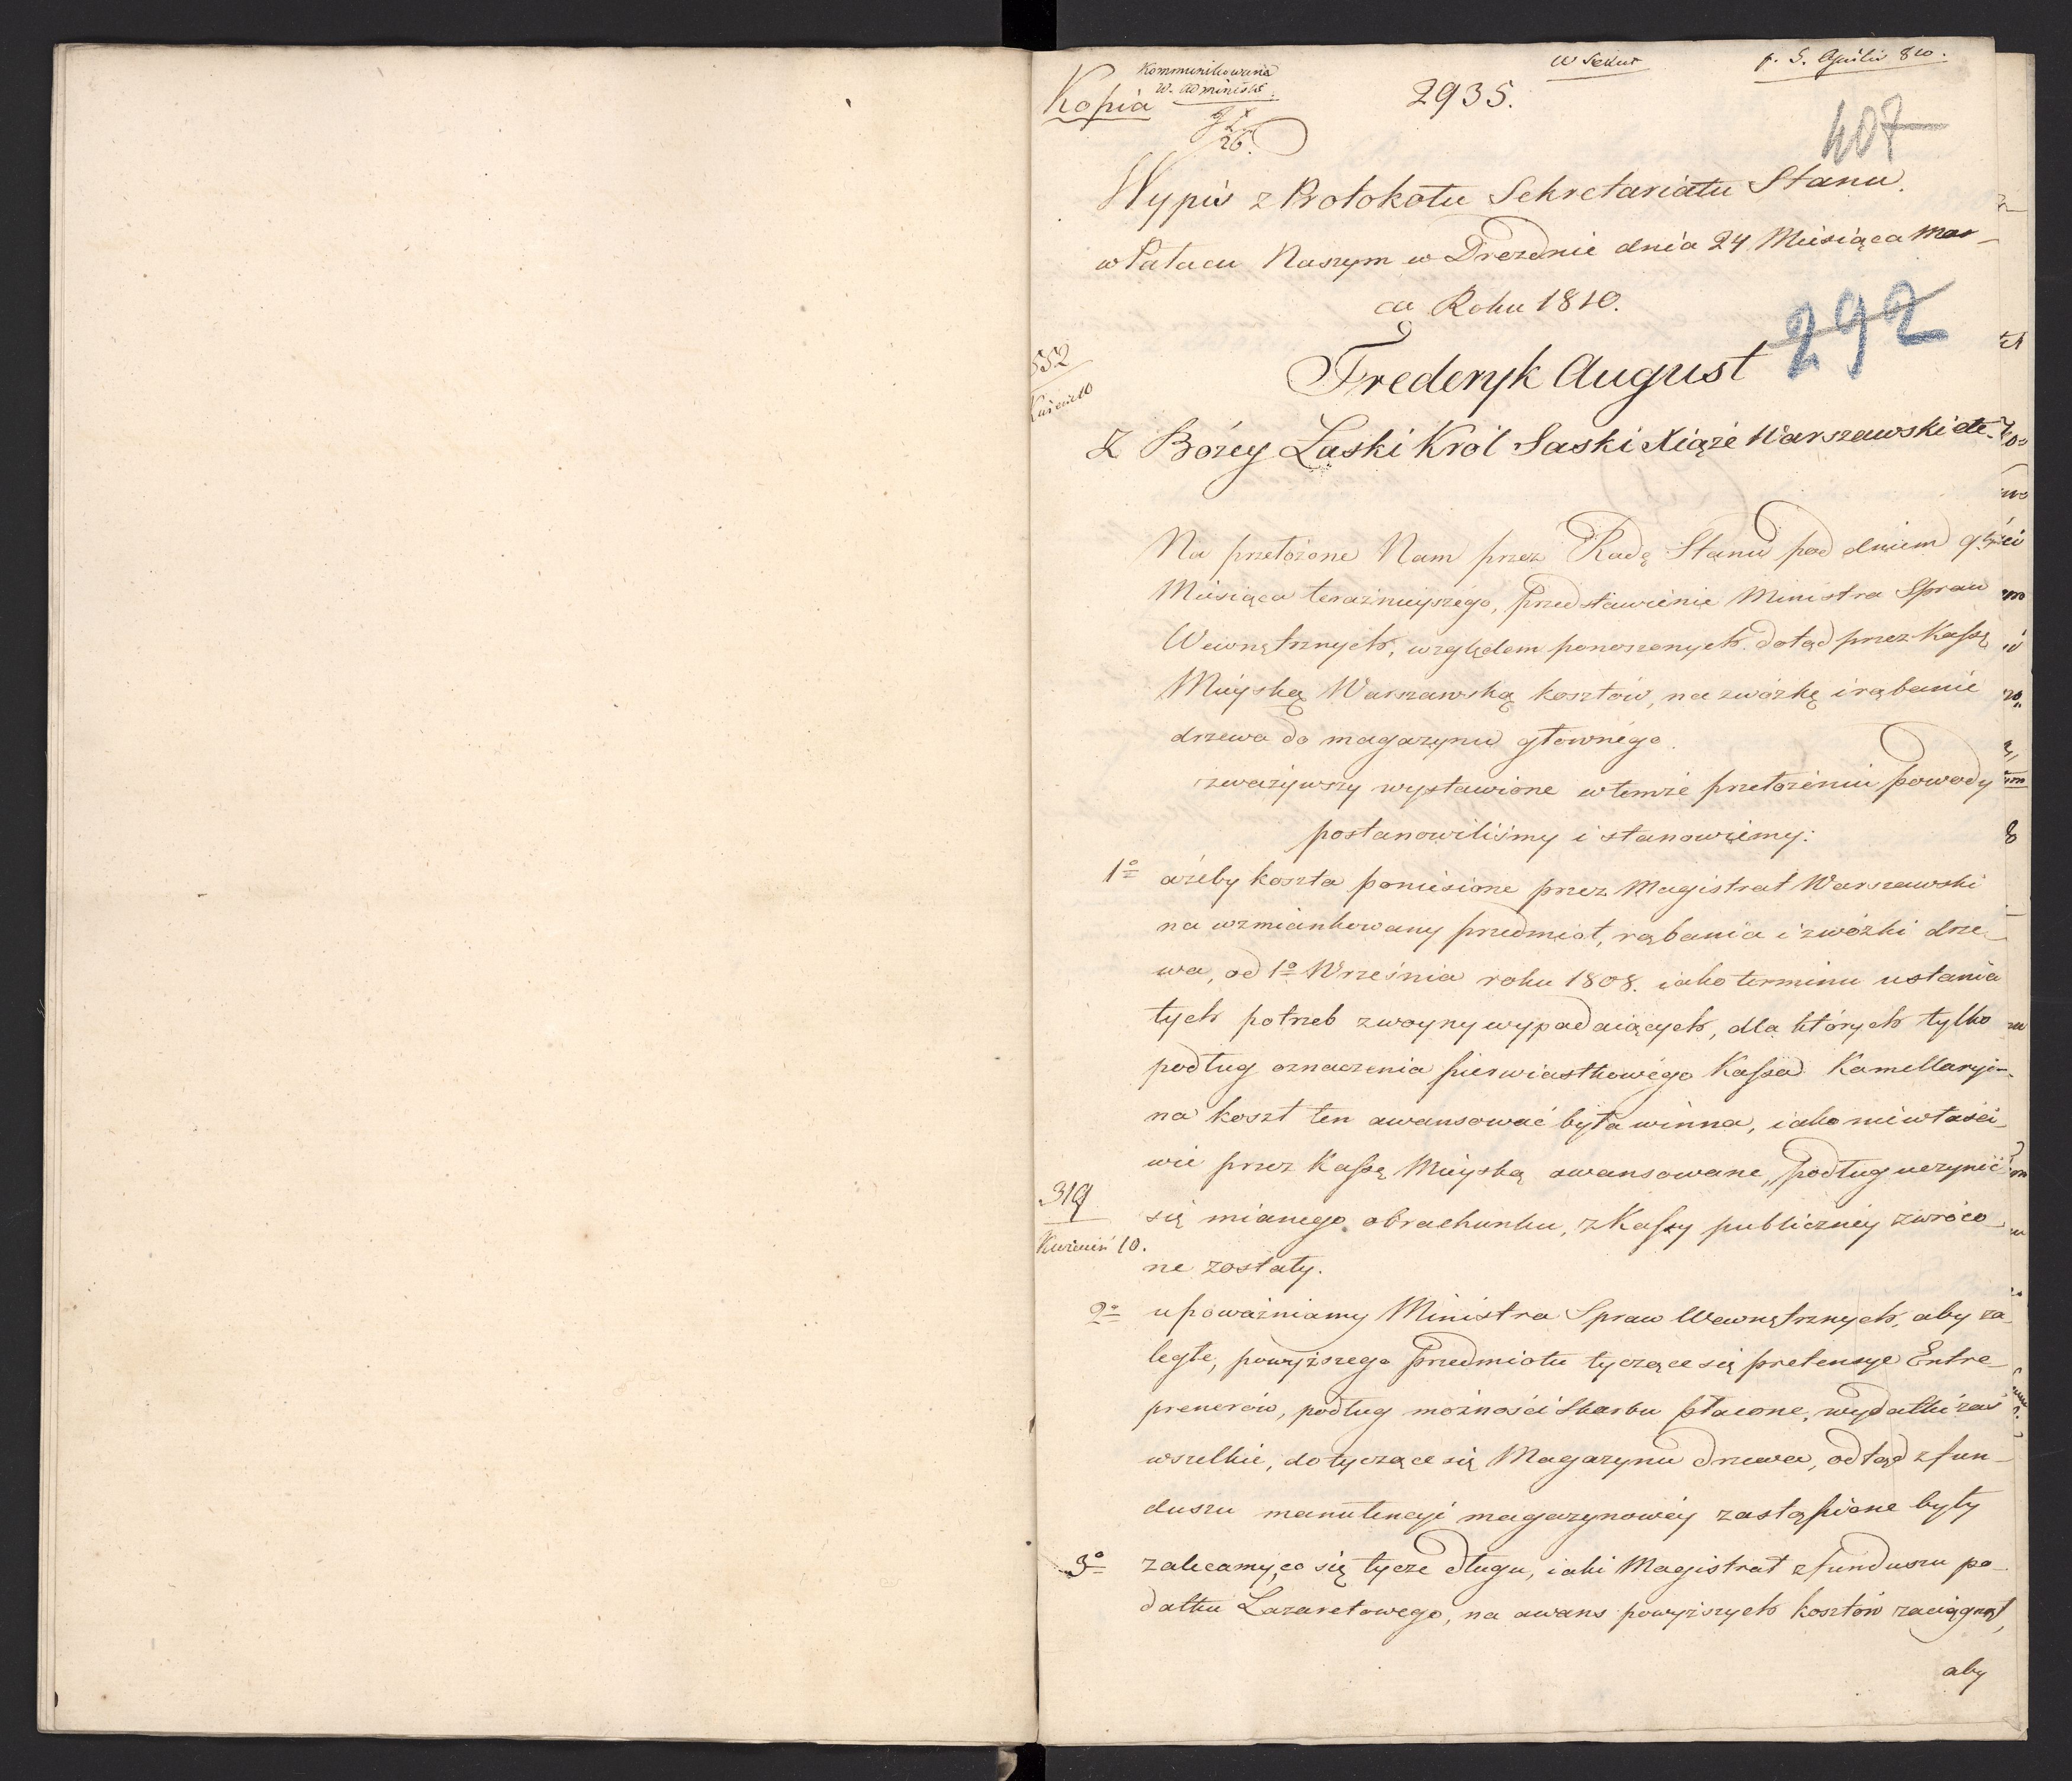 Kommunikowana
w. administr.
w Sekret
p. 5. Aprilis 810.
Kopia
2935.
26.
407
Wypis z Protokołu Sekretariatu Stanu.
w Pałacu Naszym w Dreznie dnia 24 Miesiąca Mar-
ca Roku 1810.
292
552
Kwiecień 10
Frederyk August
Z Bożey Łaski Król Saski Xiąże Warszawski etc.
Na przełożone Nam przez Radę Stanu pod dniem 9
Miesiąca teraźnieyszego, Przedstawienie Ministra Spraw
Wewnętrznych, względem ponoszonych dotąd przez Kassę
Mieyską Warszawską kosztów, na zwózkę i rąbanie
drzewa do magazynu głównégo.
zważywszy wystawione w temże przełożeniu powody
postanowiliśmy i stanowiemy:
1o ażeby koszta poniesione przez Magistrat Warszawski
na wzmiankowany przedmiot, rąbania i zwózki drze-
wa, od 1o Września roku 1808. iako terminu ustania
tych potrzeb z woyny wypadaiących, dla których tylko
podług oznaczenia pierwiastkowégo Kassa Kamellaryi-
na koszt ten awansować była winna, iako niewłaści-
wie przez Kassę Mieyską awansowane, podług uczynić
319
się mianego obrachunku, z Kassy publiczney zwróco-
Kwiecień 10.
ne zostały.
2o upoważniamy Ministra Spraw Wewnętrznych, aby za-
ległe, powyższego Przedmiotu tyczące się pretensye Entre-
prenerów, podług możności Skarbu płacone, wydatki zaś
wszelkie, dotyczące się Magazynu drzewa, odtąd z fun-
duszu manutencyi magazynowéy zastąpione były
3o zalecamy, co się tycze długu, iaki Magistrat z funduszu po-
datku Lazaretowego, na awans powyższych kosztów zaciągnął,
aby